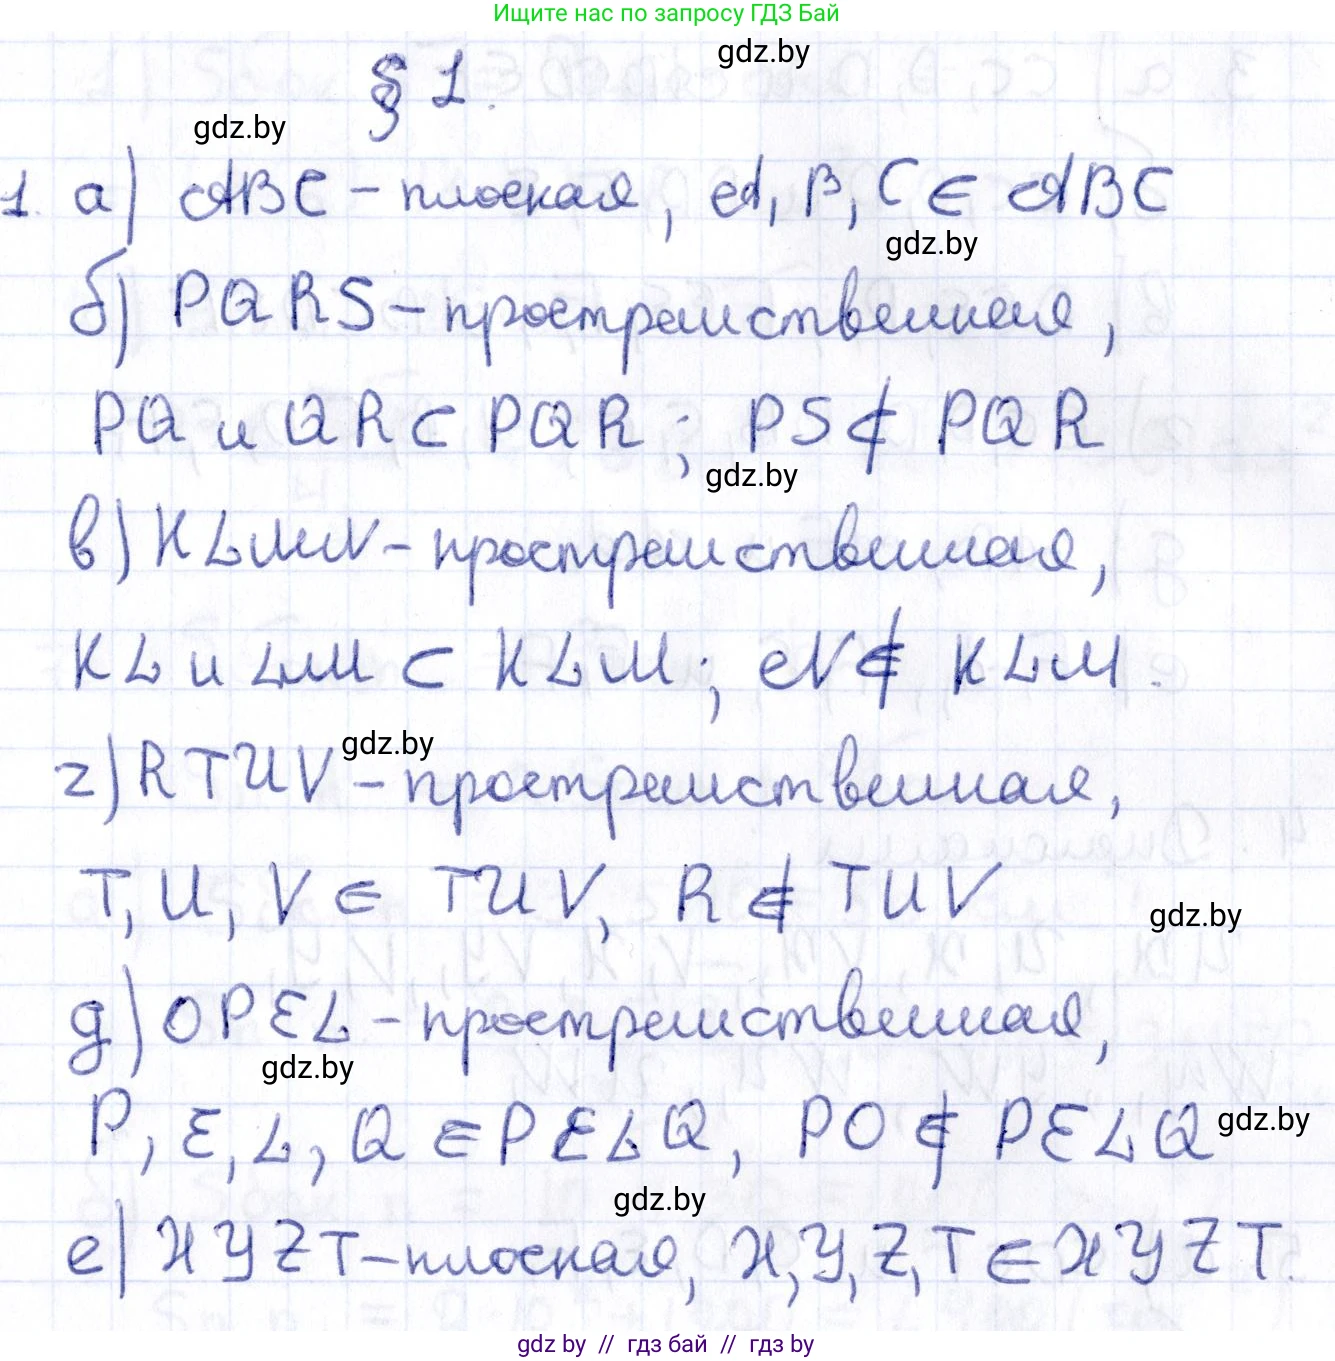 Ищите нас по запросу ГДЗ Бай
gdz.by
§ 1.
gdz.by
1. а) ABC – плоская, A, B, C ∈ ABC
gdz.by
б) PQRS – пространственная,
PQ и QR ⊂ PQR; PS ⊄ PQR
gdz.by
в) KLMN – пространственная,
KL и LM ⊂ KLM; N ∉ KLM.
gdz.by
г) RTUV – пространственная,
T, U, V ∈ TUV, R ∉ TUV
gdz.by
д) OPEL – пространственная,
gdz.by
P, E, L, Q ∈ PELQ, PO ∉ PELQ
gdz.by
gdz.by
е) XYZT – плоская, X, Y, Z, T ∈ XYZT.
gdz by // гдз бай // гдз by